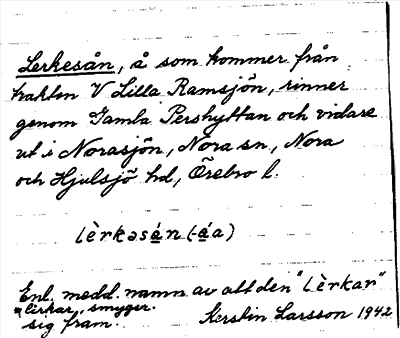 Lerkesån, å som kommer från
trakten V Lilla Ramsjön, rinner
genom Gamla Pershyttan och vidare
ut i Norasjön, Nora sn, Nora
och Hjulsjö hd, Örebro l.
lèrkəsán (-áa)
Enl. medd. namn av att den "lèrkar"
= lirkar, smyger
sig fram.
Kerstin Larsson 1942